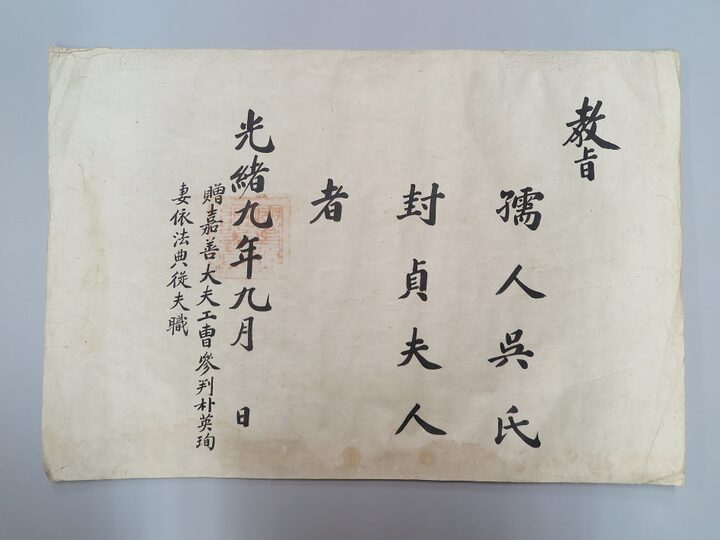 教旨
孺人吳氏
封貞夫人
者
光緒九年九月 日
贈嘉善大夫工曹參判朴英珣
妻依法典從夫職